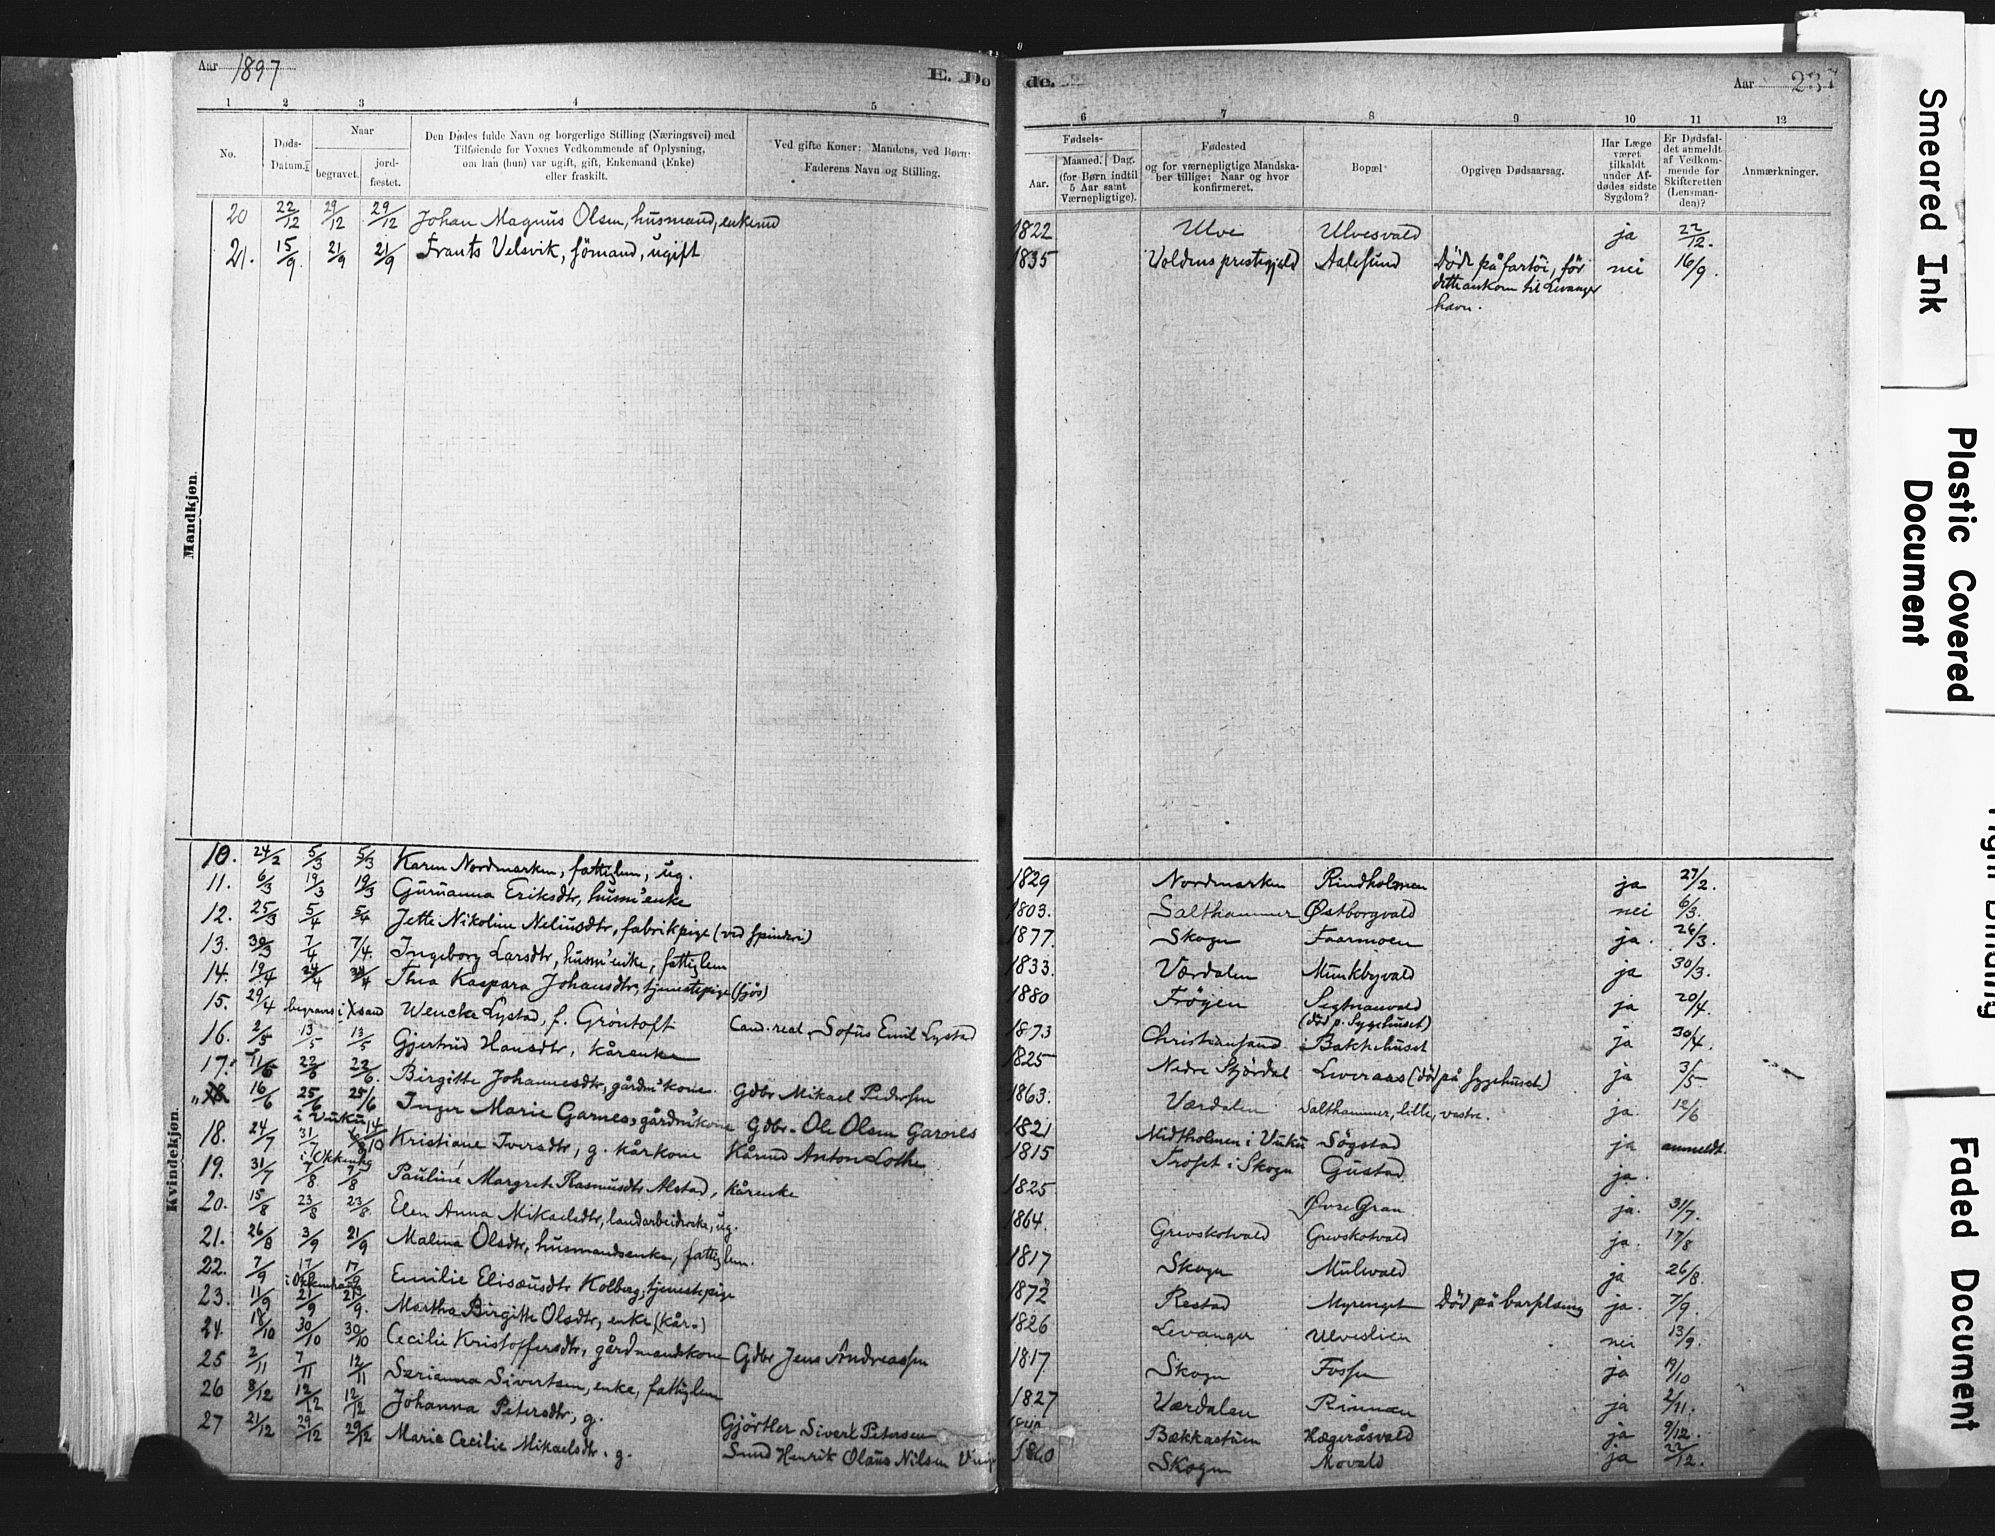 Aar 1897
E. Dø
de.
Aar 237
1 2 3 4 5 6 7 8 9 10 11 12
No.
Døds-
Datum.
Naar
begravet.
jord-
fæstet.
Den Dødes fulde Navn og borgerlige Stilling (Næringsvei) med
Tilføiende for Voxnes Vedkommende af Oplysning,
om han (hun) var ugift, gift, Enkemand (Enke)
eller fraskilt.
Ved gifte Koner: Mandens, ved Børn:
Faderens Navn og Stilling.
Fødsels-
Aar.
Maaned. Dag.
(for Børn indtil
5 Aar samt
Værnepligtige).
Fødested
og for værnepligtige Mandska-
ber tillige: Naar og hvor
konfirmeret.
Bopæl
Opgiven Dødsaarsag.
Har Læge
været
tilkaldt
under Af-
dødes sidste
Sygdom?
Er Dødsfal-
det anmeldt
af Vedkom-
mende for
Skifteretten
(Lensman-
den)?
Anmærkninger.
Mandkjøn.
20 22/12 29/12 29/12 Johan Magnus Olsen, husmand, enkemd 1822 Ulve Ulvesvald ja 22/12.
21. 15/9. 21/9 21/9 Frants Velsvik, sömand, ugift 1835 Voldens prestegjeld Aalesund Døde på fartöi, för nei 16/9.
dette ankom til Levanger
havn.
Kvindekjøn.
10. 24/2 5/3 5/3 Karen Nordmarken, fattiglem, ug. 1829 Nordmarken Rindholmen ja 27/2.
11. 6/3 19/3 19/3 Guruanna Eriksdtr, husm'enke 1803. Salthammer Østborgvald nei 6/3.
12. 25/3 5/4 5/4 Jette Nikoline Neliusdtr, fabrikpige (ved spinderi) 1877. Skogn Faarmoen ja. 26/3.
13. 30/3 7/4 7/4. Ingeborg Larsdtr, husm'enke, fattiglem 1833. Værdalen Munkbyvald ja 30/3.
14. 19/4 24/4 24/4 Thea Kaspara Johansdtr, tjenestepige (fjös) 1880 Fröyen Segtnanvald ja 20/4.
(död p. Sygehuset)
15. 29/4 begraves i Xsand Wencke Lystad, f. Gröntoft Cand. real. Sofus Emil Lystad 1873 Christiansand Bakkehuset ja 30/4.
16. 2/5 13/5 13/5 Gjertrud Hansdtr, kårenke 1825 Nedre Stjördal Liveraas (död på sygehuset) ja 3/5
17. 11/6 22/6 22/6. Birgitte Johannesdtr, gårdm'kone. Gdbr Mikael Pedersen 1863. Værdalen Salthammer, lille, vestre. ja. 12/6
16/6 25/6 25/6 Inger Marie Garnes, gårdm'kone Gdbr. Ole Olsen Garnes 1821 Midtholmen i Vuku Sögstad ja anmeldt.
i Vuku
18. 24/7 31/7 Kristiane Iversdtr, g. kårkone Kårmd Anton Lothe 1815 Troset i Skogn Gustad ja.
19. 31/7 7/8 7/8 Pauline Margrete Rasmusdtr Alstad, kårenke 1825 Øvre Gran ja. 31/7.
20. 15/8 23/8 23/8 Elen Anna Mikaelsdtr, landarbeiderske, ug. 1864. Grevskotvald Grevskotvald ja. 17/8
21. 26/8 3/9 21/9 Malena Olsdtr, husmandsenke, fattiglem. 1817 Skogn Mulevald ja 26/8.
22. 7/9 17/9 17/9 Emilie Elisæusdtr Kolberg, tjenestepige 1872 Restad Myrenget Död på barselseng ja. 7/9.
23. 11/9 21/9 21/9. Martha Birgitte Olsdtr, enke (kår.) 1826 Levanger Ulveslien nei 13/9.
24. 18/10 30/10 30/10 Cecilie Kristoffersdtr, gårdmandskone Gdbr Jens Andreassen 1817 Skogn Fossen ja 19/10
25 2/11 7/11 12/11 Serianna Sivertsen, enke, fattiglem 1827 Værdalen Rinnan ja 2/11.
26 8/12 12/12 12/12 Johanna Petersdtr, g. Gjörtler Sivert Petersen Bækkastuen Hægeråsvald ja 9/12.
27 21/12 29/12 29/12 Marie Cecilie Mikaelsdtr. g. Smed Henrik Olaus Nilsen 1860 Skogn Movald ja 22/12.
Smeared Ink
Plastic Covered
Document
Tight Binding
Faded Document